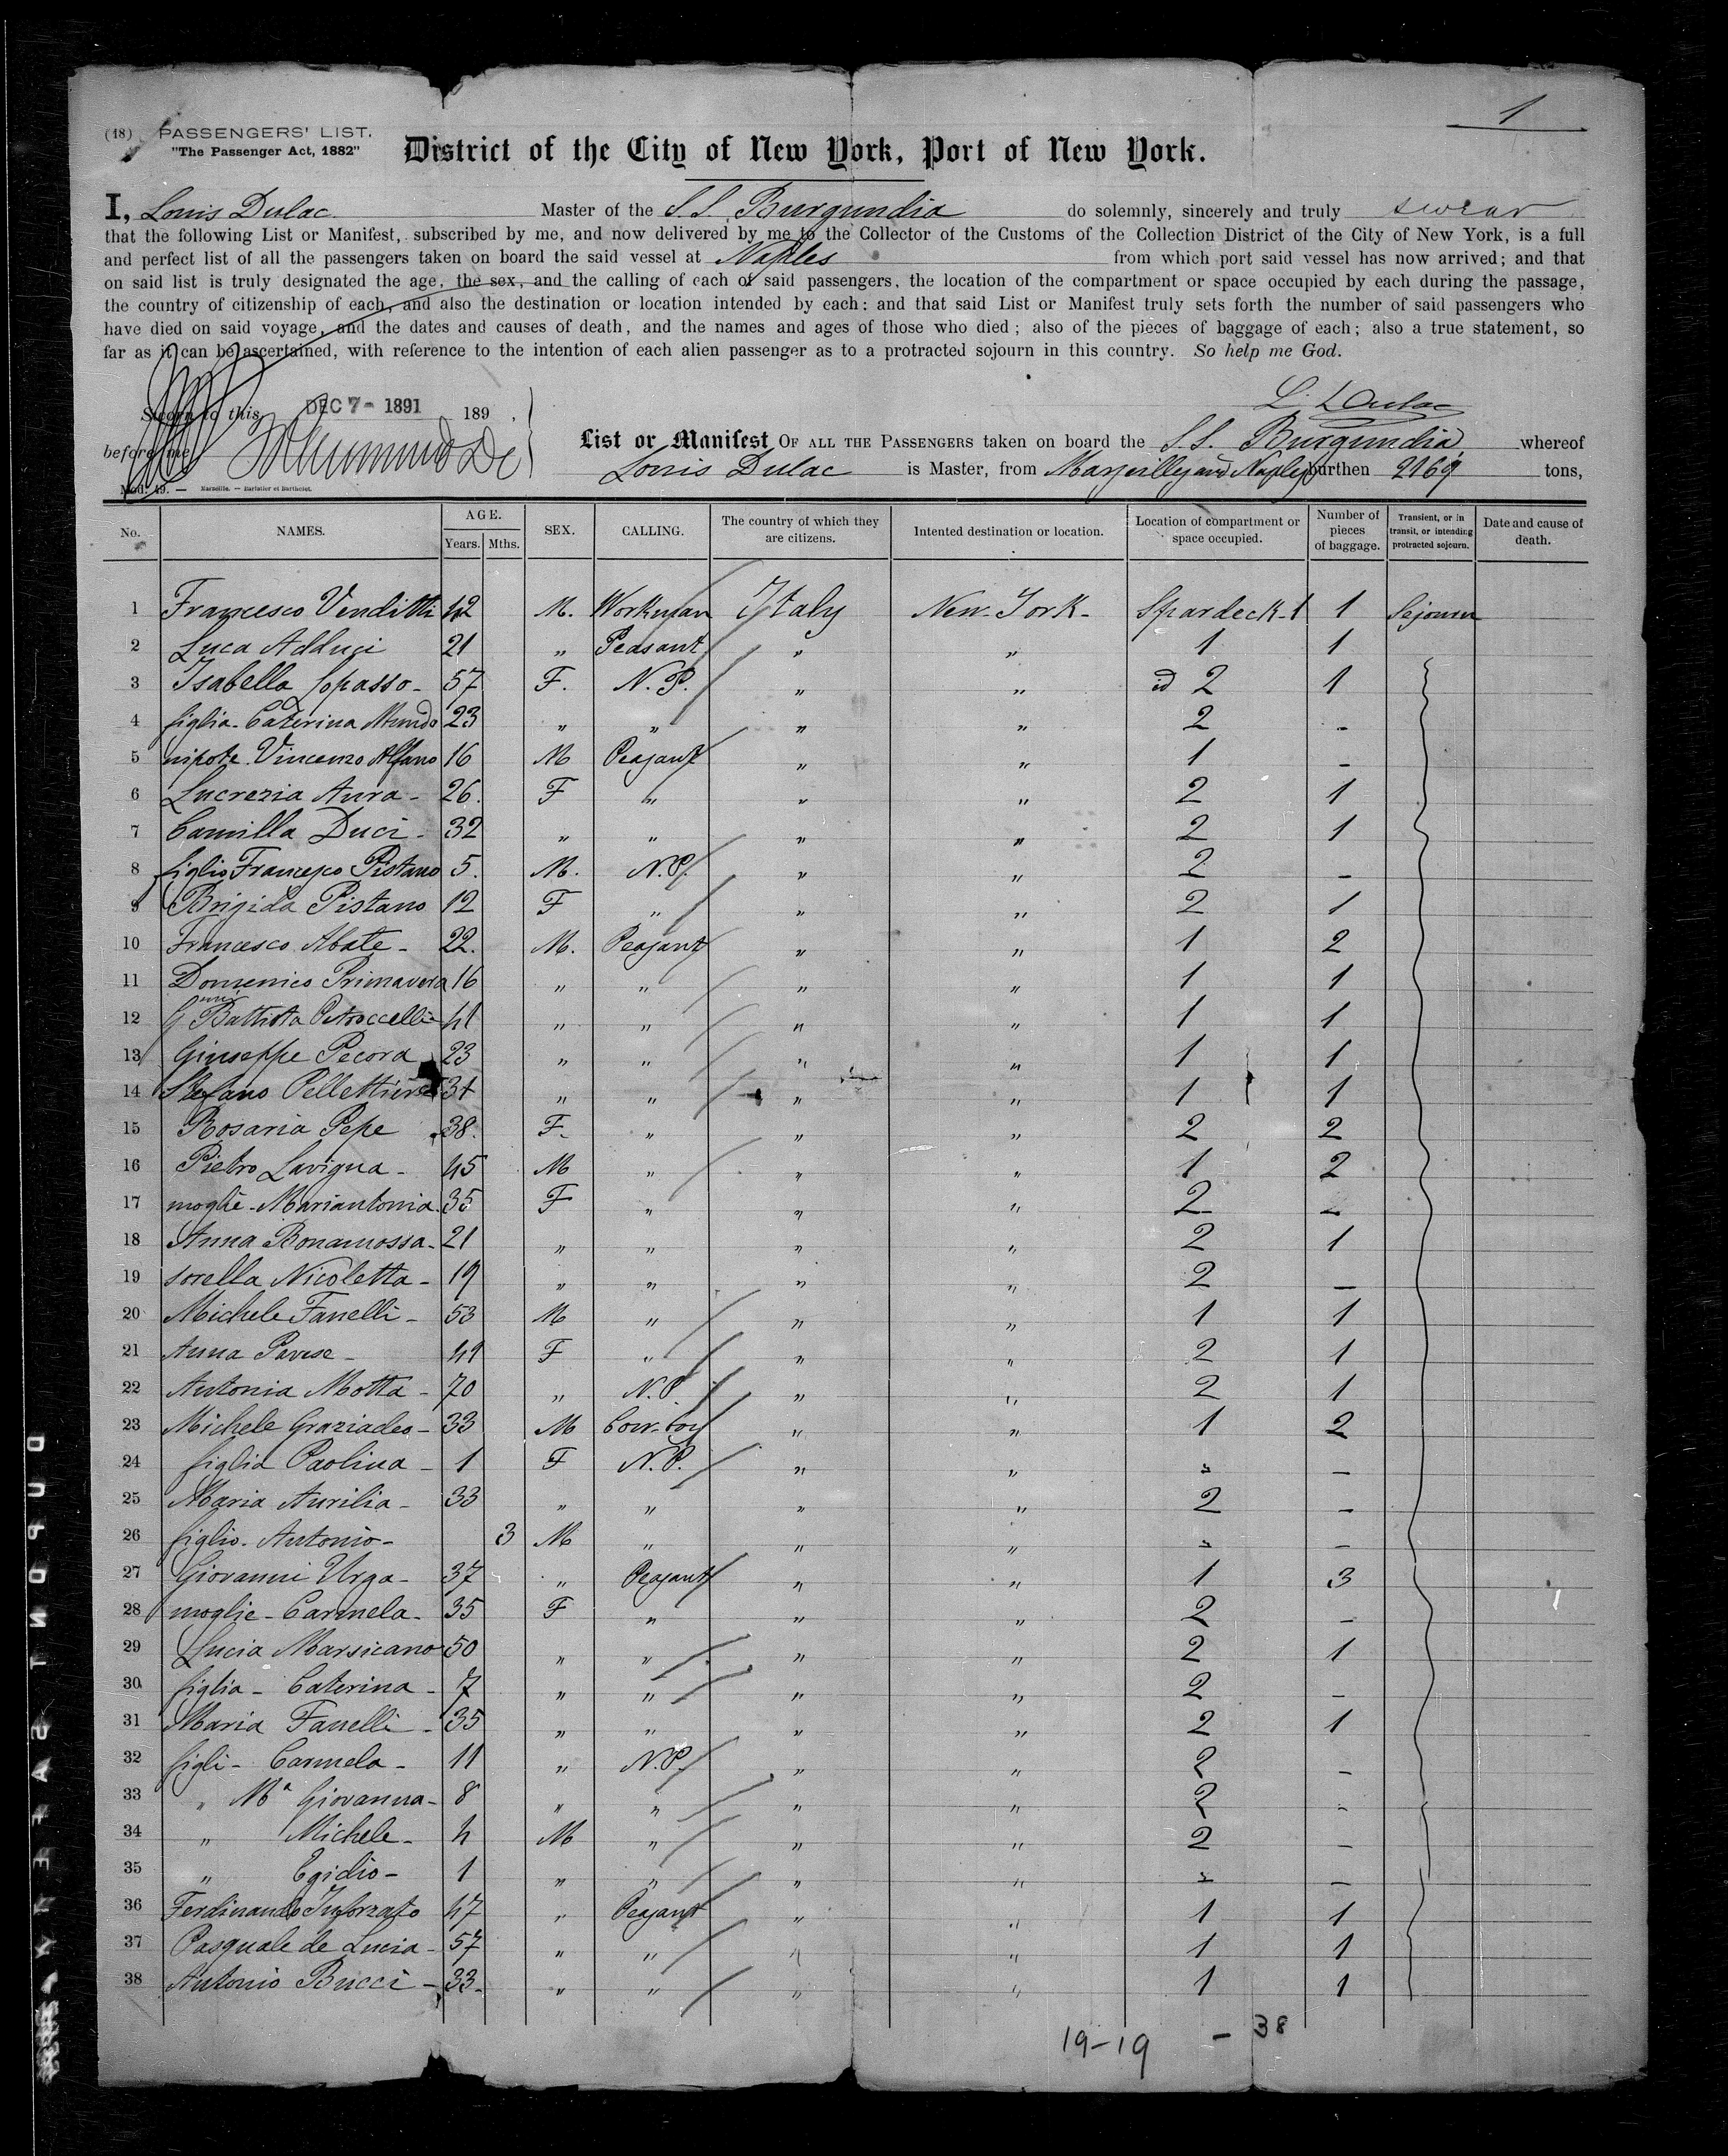 1
(18) PASSENGERS' LIST.
"The Passenger Act, 1882"
District of the City of New York, Port of New York.
I, Louis Dulac Master of the S.S. Burgundia do solemnly, sincerely and truly swear
that the following List or Manifest, subscribed by me, and now delivered by me to the Collector of the Customs of the Collection District of the City of New York, is a full
and perfect list of all the passengers taken on board the said vessel at Naples from which port said vessel has now arrived; and that
on said list is truly designated the age, the sex, and the calling of each of said passengers, the location of the compartment or space occupied by each during the passage,
the country of citizenship of each, and also the destination or location intended by each: and that said List or Manifest truly sets forth the number of said passengers who
have died on said voyage, and the dates and causes of death, and the names and ages of those who died; also of the pieces of baggage of each; also a true statement, so
far as it can be ascertained, with reference to the intention of each alien passenger as to a protracted sojourn in this country. So help me God.
L. Dulac
Sworn to this DEC 7- 1891 189 .
before me
List or Manifest OF ALL THE PASSENGERS taken on board the S.S. Burgundia whereof
Louis Dulac is Master, from Marseilles and Naples burthen 2169 tons,
Mod. 19. — Marseille. — Barlatier et Barthelet.
No. NAMES. AGE. Years. Mths. SEX. CALLING. The country of which they are citizens. Intented destination or location. Location of compartment or space occupied. Number of pieces of baggage. Transient, or in transit, or intending protracted sojourn. Date and cause of death.
1 Francesco Venditti 42 M. Workman Italy New-York- Spardeck-1 1 Sejourn
2 Luca Adduci 21 " Peasant " " 1 1
3 Isabella Lopasso- 57 F. N.P. " " id 2 1
4 figlia-Caterina Mundo 23 " " " " 2 -
5 nipote Vincenzo Alfano 16 M Peasant " " 1 -
6 Lucrezia Aura- 26. F " " " 2 1
7 Camilla Duci- 32 " " " " 2 1
8 figlio Francesco Pistano 5. M. N.P. " " 2 -
9 Brigida Pistano 12 F " " " 2 1
10 Francesco Abate- 22. M. Peasant " " 1 2
11 Domenico Primavera 16 " " " " 1 1
12 Gnni Battista Petroccelli 41 " " " " 1 1
13 Giuseppe Pecora 23 " " " " 1 1
14 Stefano Pellettieri " " " " 1 1
15 Rosaria Pepe 38. F. " " " 2 2
16 Pietro Lavigna- 45 M " " " 1 2
17 moglie-Mariantonia 35 F " " " 2 -
18 Anna Bonamossa- 21 " " " " 2 1
19 sorella Nicoletta- 19 " " " " 2 -
20 Michele Fanelli- 53 M " " " 1 1
21 Anna Pavese- F " " " 2 1
22 Antonia Motta- 70 " N.P. " " 2 1
23 Michele Graziadeo- 33 M Cow-boy " " 1 2
24 figlia Paolina- 1 F N.P. " " " -
25 Maria Aurilia- 33 " " " " 2 -
26 figlio. Antonio- 3 M " " " " -
27 Giovanni Urga- 37 " Peasant " " 1 3
28 moglie-Carmela- 35 F " " " 2 -
29 Lucia Marsicano 50 " " " " 2 1
30 figlia- Caterina- 7 " " " " 2 -
31 Maria Fanelli- 35 " " " " 2 1
32 figli- Carmela- 11 " N.P. " " 2 -
33 " Ma Giovanna- 8 " " " " 2 -
34 " Michele- 4 M " " " 2 -
35 " Egidio- 1 " " " " " -
36 Ferdinando Inforzato 47 " Peasant " " 1 1
37 Pasquale de Lucia- 57 " " " " 1 1
38 Antonio Bucci- 33- " " " " 1 1
19-19 - 38
DUPONT SAFETY